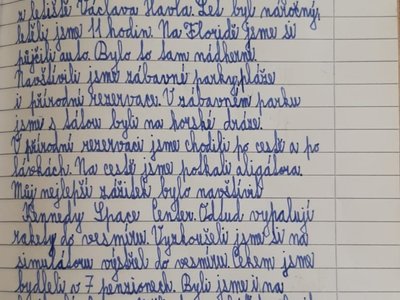 z letiště Václava Havla. Let byl náročný,
letěli jsme 11 hodin. Na Floridě jsme si
půjčili auto. Bylo to tam nádherné.
Navštívili jsme zábavné parky, pláže
i přírodní rezervace. V zábavném parku
jsme s tátou byli na horské dráze.
V přírodní rezervaci jsme chodili po cestě a po
lávkách. Na cestě jsme potkali aligátora.
Měj nejlepší zážitek bylo navštívit
Kennedy Space Center. Odtud vypalují
rakety do vesmíru. Vyzkoušeli jsme si na
simulátoru výstřel do vesmíru. Celkem jsme
bydleli v 7 penzionech. Byli jsme i na